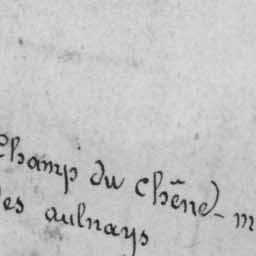 Champ du Chêne-m
les aulnays